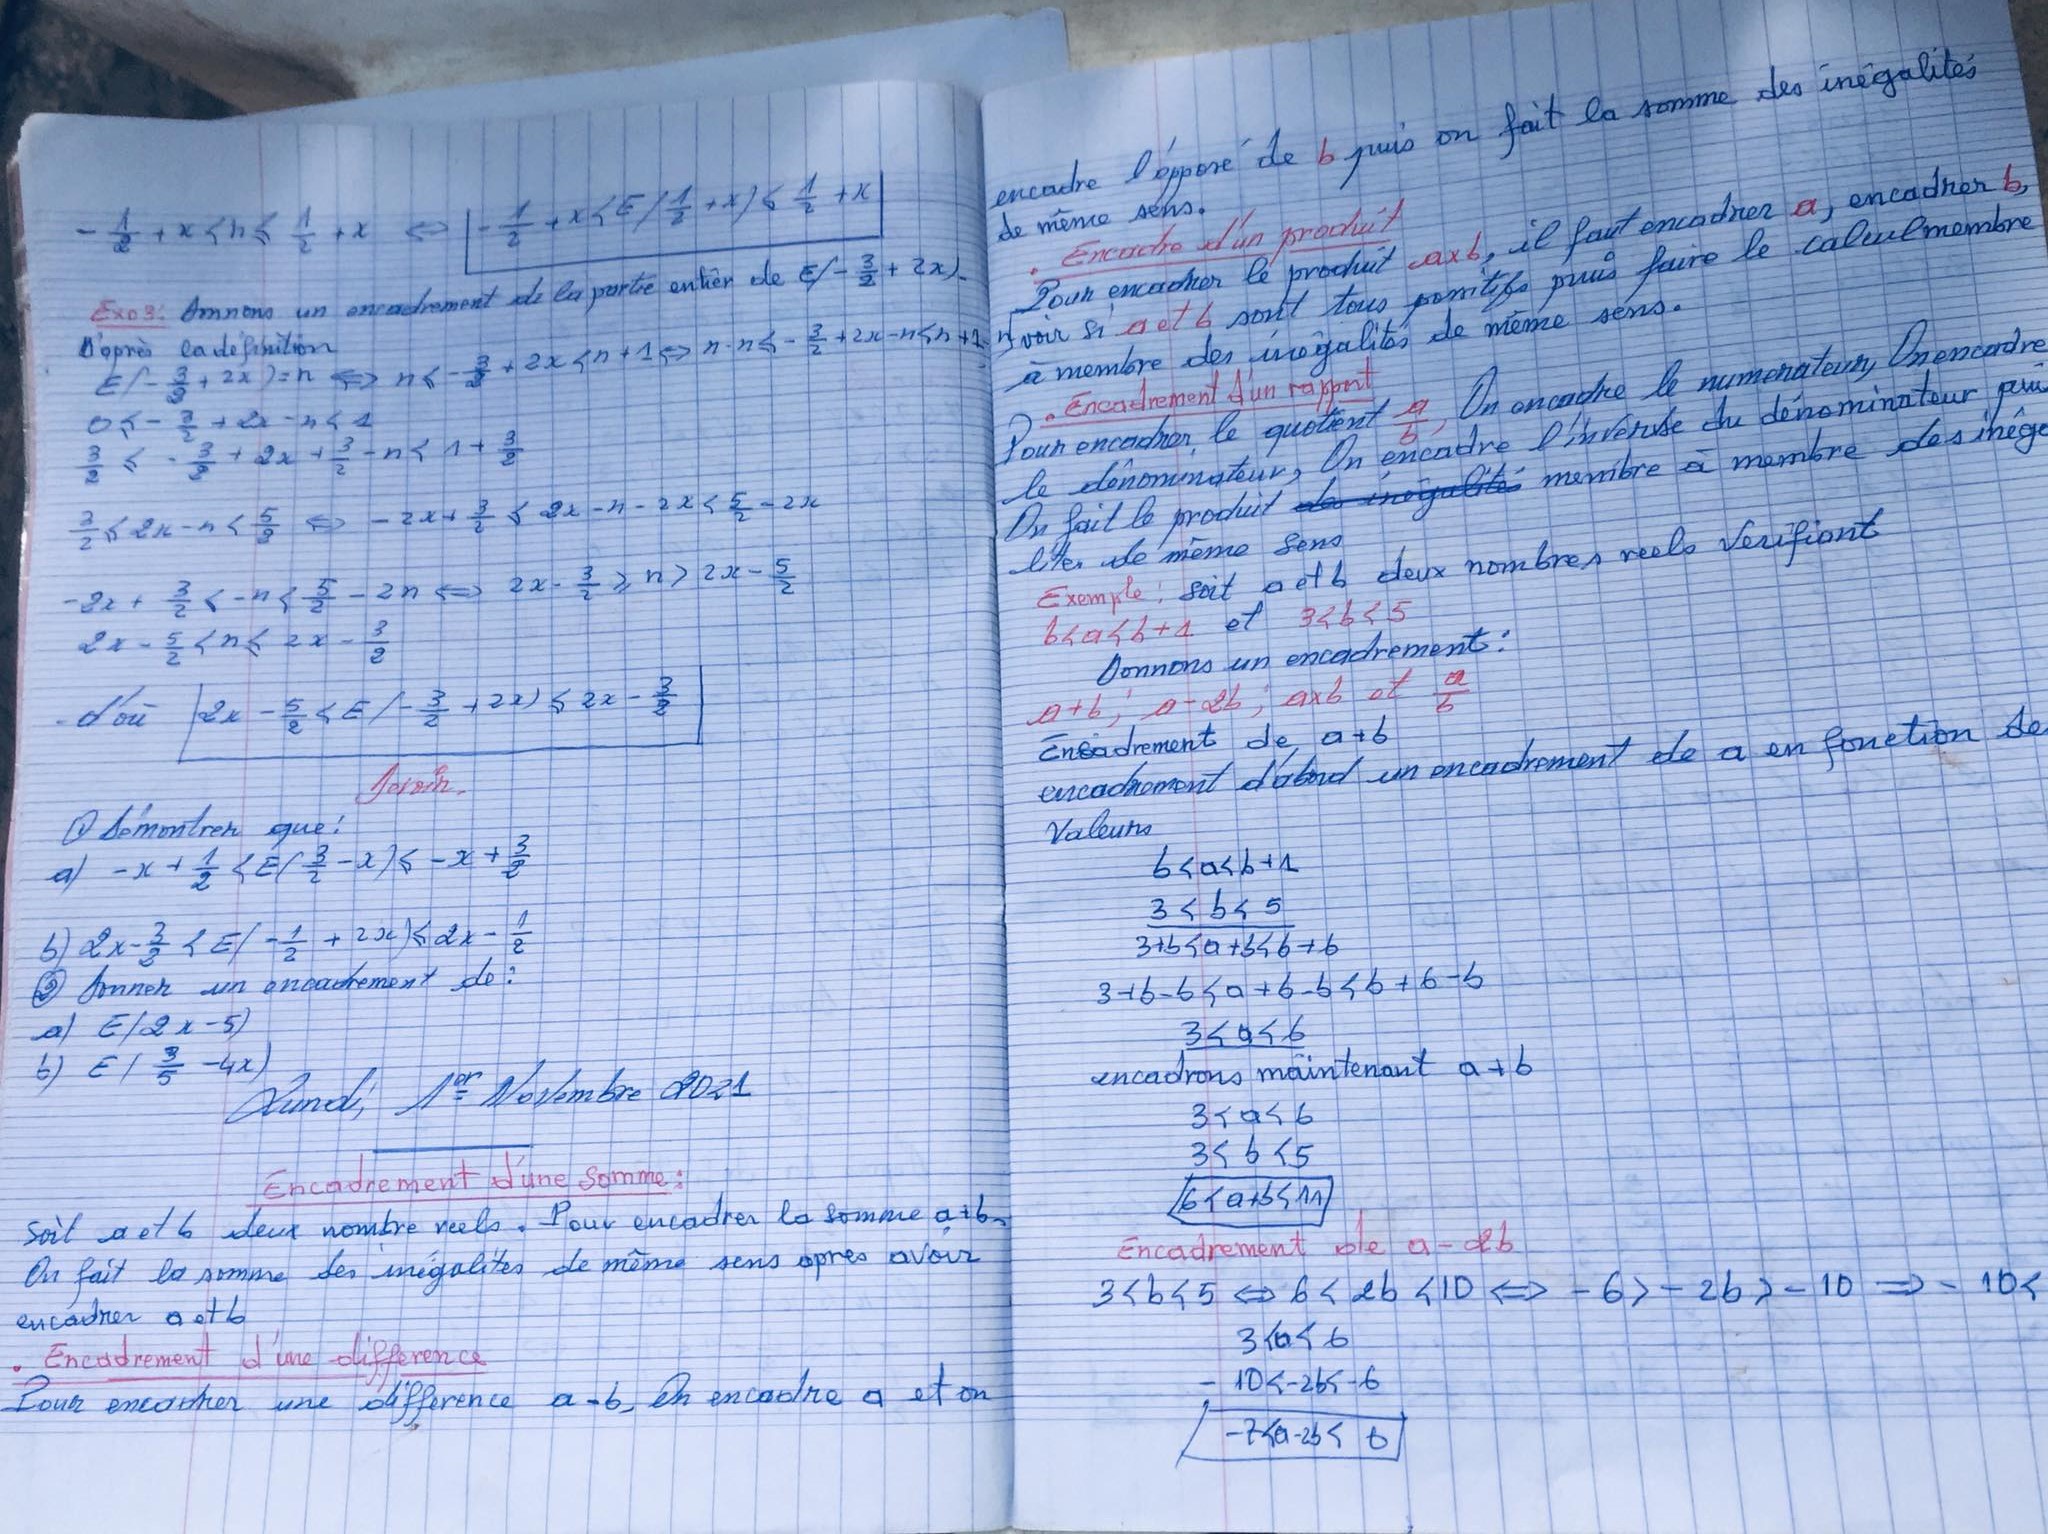 -1/2 + x < n ≤ 1/2 + x ⇔ -1/2 + x < E(1/2 + x) ≤ 1/2 + x
Exo 3: Donnons un encadrement de la partie entier de E(-3/2 + 2x).
D'après la définition
E(-3/2 + 2x) = n ⇔ n ≤ -3/2 + 2x < n + 1 ⇔ n-n ≤ -3/2 + 2x - n < n + 1 - n
0 ≤ -3/2 + 2x - n < 1
3/2 ≤ -3/2 + 2x + 3/2 - n < 1 + 3/2
3/2 ≤ 2x - n < 5/2 ⇔ -2x + 3/2 ≤ 2x - n - 2x < 5/2 - 2x
-2x + 3/2 ≤ -n < 5/2 - 2n ⇔ 2x - 3/2 ≥ n > 2x - 5/2
2x - 5/2 < n ≤ 2x - 3/2
d'où 2x - 5/2 < E(-3/2 + 2x) ≤ 2x - 3/2
① Démontrer que:
a) -x + 1/2 < E(3/2 - x) ≤ -x + 3/2
b) 2x - 3/2 < E(-1/2 + 2x) ≤ 2x - 1/2
② Donner un encadrement de:
a) E(2x - 5)
b) E(3/5 - 4x)
Lundi, 1er Novembre 2021
Encadrement d'une Somme:
Soit a et b deux nombre reels. Pour encadrer la somme a+b,
On fait la somme des inégalités de même sens apres avoir
encadrer a et b
. Encadrement d'une difference
Pour encadrer une différence a-b, On encadre a et on
encadre l'opposé de b puis on fait la somme des inégalités
de même sens.
. Encadre d'un produit
Pour encadrer le produit axb, il faut encadrer a, encadrer b,
voir si a et b sont tous positifs puis faire le calcul membre
à membre des inégalités de même sens.
. Encadrement d'un rapport
Pour encadrer le quotient a/b, On encadre le numerateur, On encadre
le dénominateur, On encadre l'inverse du dénominateur puis
On fait le produit des inégalités membre à membre des inéga
lités de même sens
Exemple: soit a et b deux nombres reels verifiant
b<a<b+1 et 3<b<5
Donnons un encadrement:
a+b; a-2b; axb et a/b
Encadrement de a+b
encadrement d'abord un encadrement de a en fonction de
Valeurs
b<a<b+1
3<b<5
3+b<a+b<b+6
3+b-b<a+b-b<b+6-b
3<a<6
encadrons maintenant a+b
3<a<6
3<b<5
6<a+b<11
Encadrement de a-2b
3<b<5 ⇔ 6<2b<10 ⇔ -6>-2b>-10 ⇒ -10<
3<a<6
-10<-2b<-6
-7<a-2b<